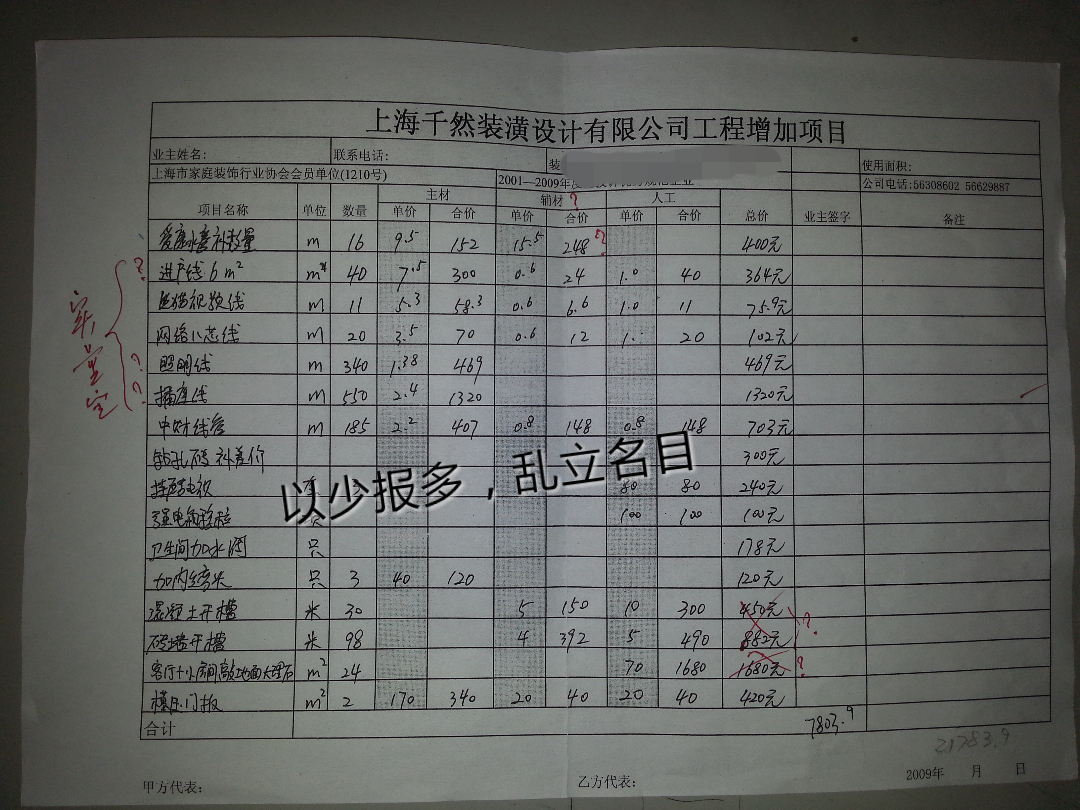 上海千然装潢设计有限公司工程增加项目
业主姓名： 联系电话： 装 使用面积：
上海市家庭装饰行业协会会员单位(1210号) 2001—2009年度 公司电话:56308602 56629887
项目名称 单位 数量 主材 辅材 ? 人工 总价 业主签字 备注
单价 合价 单价 合价 单价 合价
m 16 9.5 152 15.5 248 ? 400元
? 进户线6m² 40 7.5 300 0.6 24 1.0 40 364元
视频线 m 11 5.3 58.3 0.6 6.6 1.0 11 75.9元
网络八芯线 m 20 3.5 70 0.6 12 1. 20 102元
照明线 m 340 1.38 469 469元
插座线 m 550 2.4 1320 1320元
线管 m 185 2.2 407 0.8 148 0.8 148 703元
钻孔 补差价 300元
电视 80 80 240元
强电箱 只 100 100 100元
卫生间加水 只 178元
加内丝弯头 只 3 40 120 120元
混凝土开槽 米 30 5 150 10 300 450元
砖墙开槽 米 98 4 392 5 490 882元 ?
客厅+小房间 地面大理石 m² 24 70 1680 1680元 ?
模压门板 m² 2 170 340 20 40 20 40 420元
合计 7803.9
21783.9
甲方代表： 乙方代表： 2009年 月 日
实量定
? ?
以少报多，乱立名目